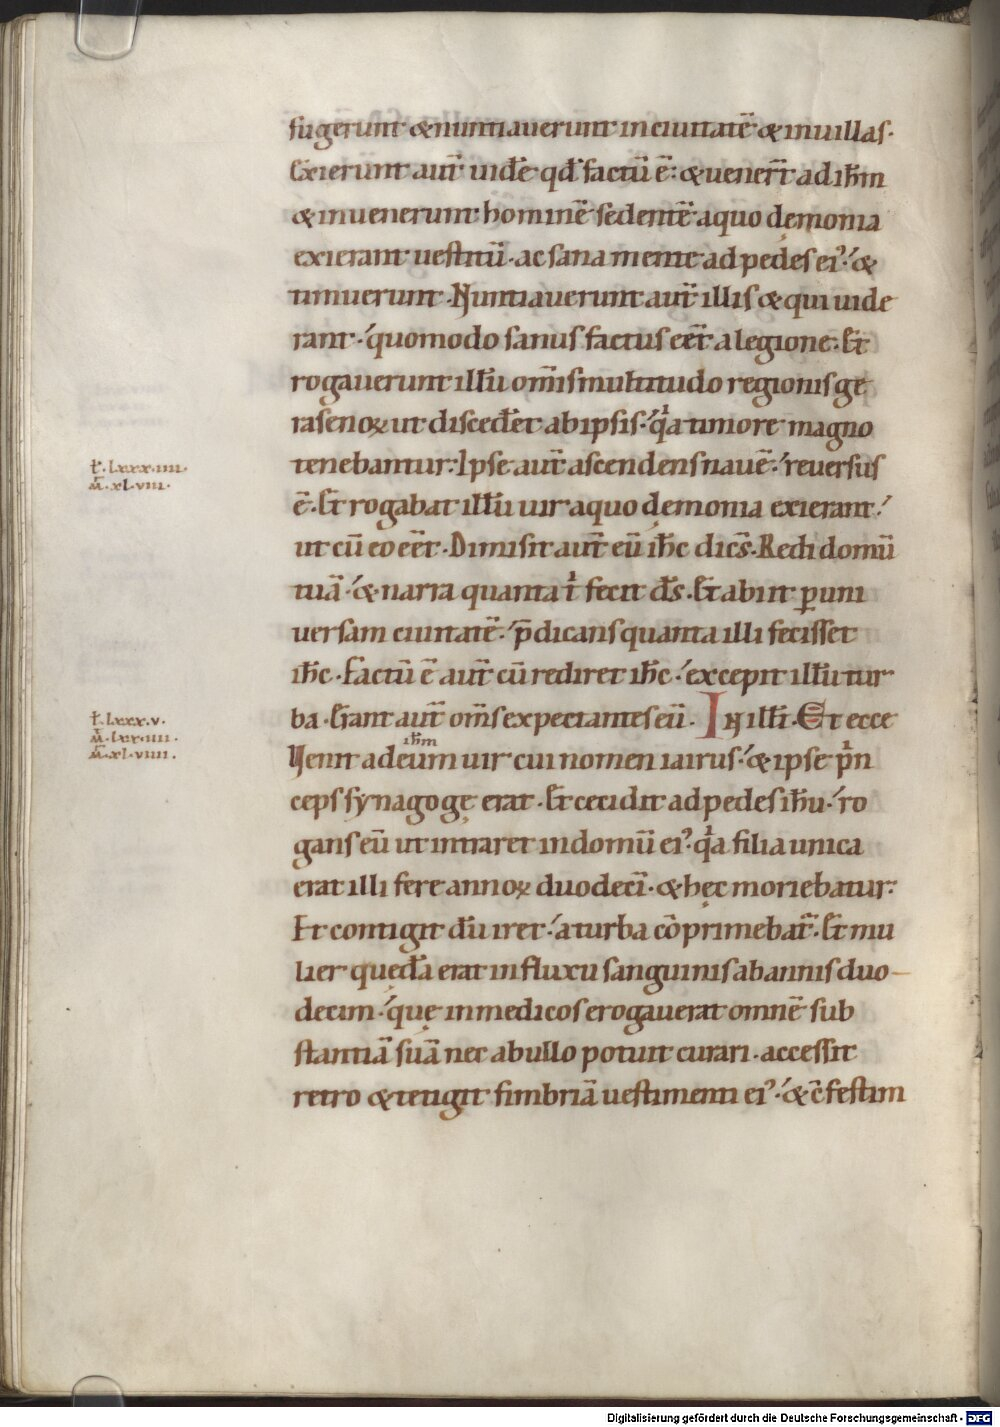 fugerunt & nuntiauerunt in ciuitatē & in uillas·
Exierunt aut̄ uidēe qđ factū ē: & venert̄ ad ih̄m
& inuenerunt hominē sedentē a quo demonia
exierant uestitū · ac sana mente ad pedes ei᾿ ·́ &
timuerunt · Nuntiauerunt aut̄ illis & qui uide
rant ·́ quomodo sanus factus eēt a legione · Et
rogauerunt illū om̄is multitudo regionis ge
rasenoꝝ ut discedēt ab ipsis ·́ qͥa timore magno
tenebantur: Ipse aut̄ ascendens nauē ·́ reuersus
ē · Et rogabat illū uir a quo demonia exierant ·́
ut cū eo eēt · Dimisit aut̄ eū ih̄c dicēs · Redi domū
tuā ·́ & narra quanta tͥ fecit d̄s · Et abiit ꝑ uni
uersam ciuitatē ·́ p̄dicans quanta illi fecisset
ih̄c · Factū ē aut̄ cū rediret ih̄c ·́ excepit illū tur
ba · Erant aut̄ om̄s expectantes eū · IN illī · Et ecce
ih̄m
Venit ad eum uir cui nomen iairus ·́ & ipse pͥn
ceps synagogę erat · Et cecidit ad pedes ih̄u ·́ ro
gans eū ut intraret in domū ei᾿ qͥa filia unica
erat illi fere annoꝝ duodecī · & hęc moriebatur:
Et contigit dū iret ·́ a turba cōprimebat̄ · Et mu
lier quędā erat in fluxu sanguinis ab annis duo–
decim ·́ quę in medicos erogauerat omnē sub
stantiā suā nec ab ullo potuit curari · accessit
retro & tetigit fimbriā uestimenti ei᾿ ·́ & c̄festim
ł · lxxx · iiii ·
m̄ · xl · viii ·
ł · lxxx · v ·
m̄ · lxx · iiii ·
m̄ · xl · viiii ·
Digitalisierung gefördert durch die Deutsche Forschungsgemeinschaft - DFG